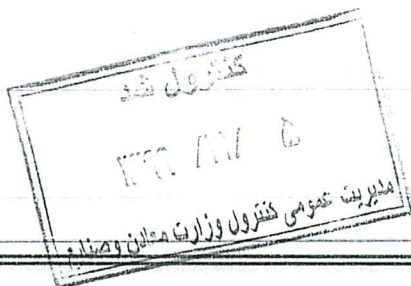 کنترول شد
۵ /۱۱/ ۱۳۹۲
مدیریت عمومی کنترول وزارت معادن وصنایع